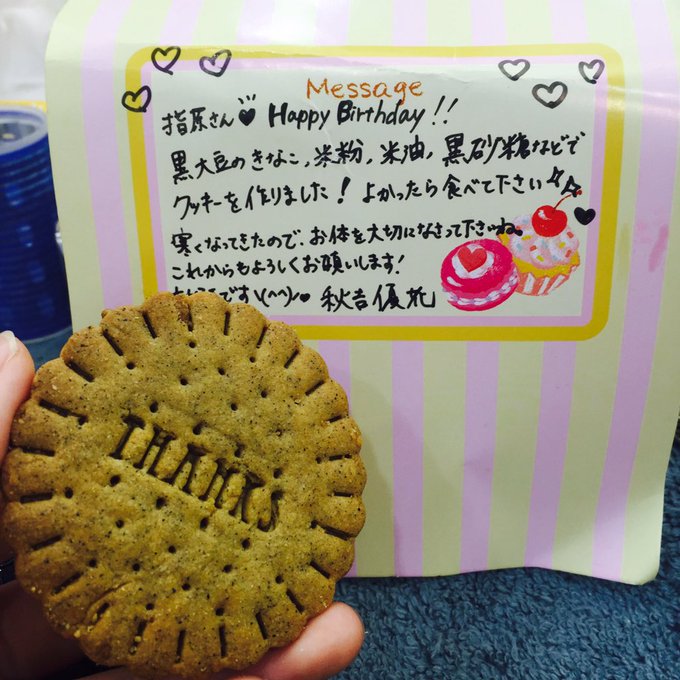 Message
指原さん♥ Happy Birthday!!
黒大豆のきなこ,米粉,米油,黒砂糖などで
クッキーを作りました! よかったら食べて下さい
寒くなってきたので、お体を大切になさって下さいね。
これからもよろしくお願いします!
です\(^^)/♥ 秋吉優花
THANKS